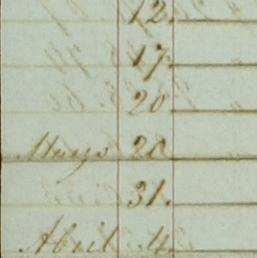 12.
17.
20
Mayo 28
31.
Abril 4.